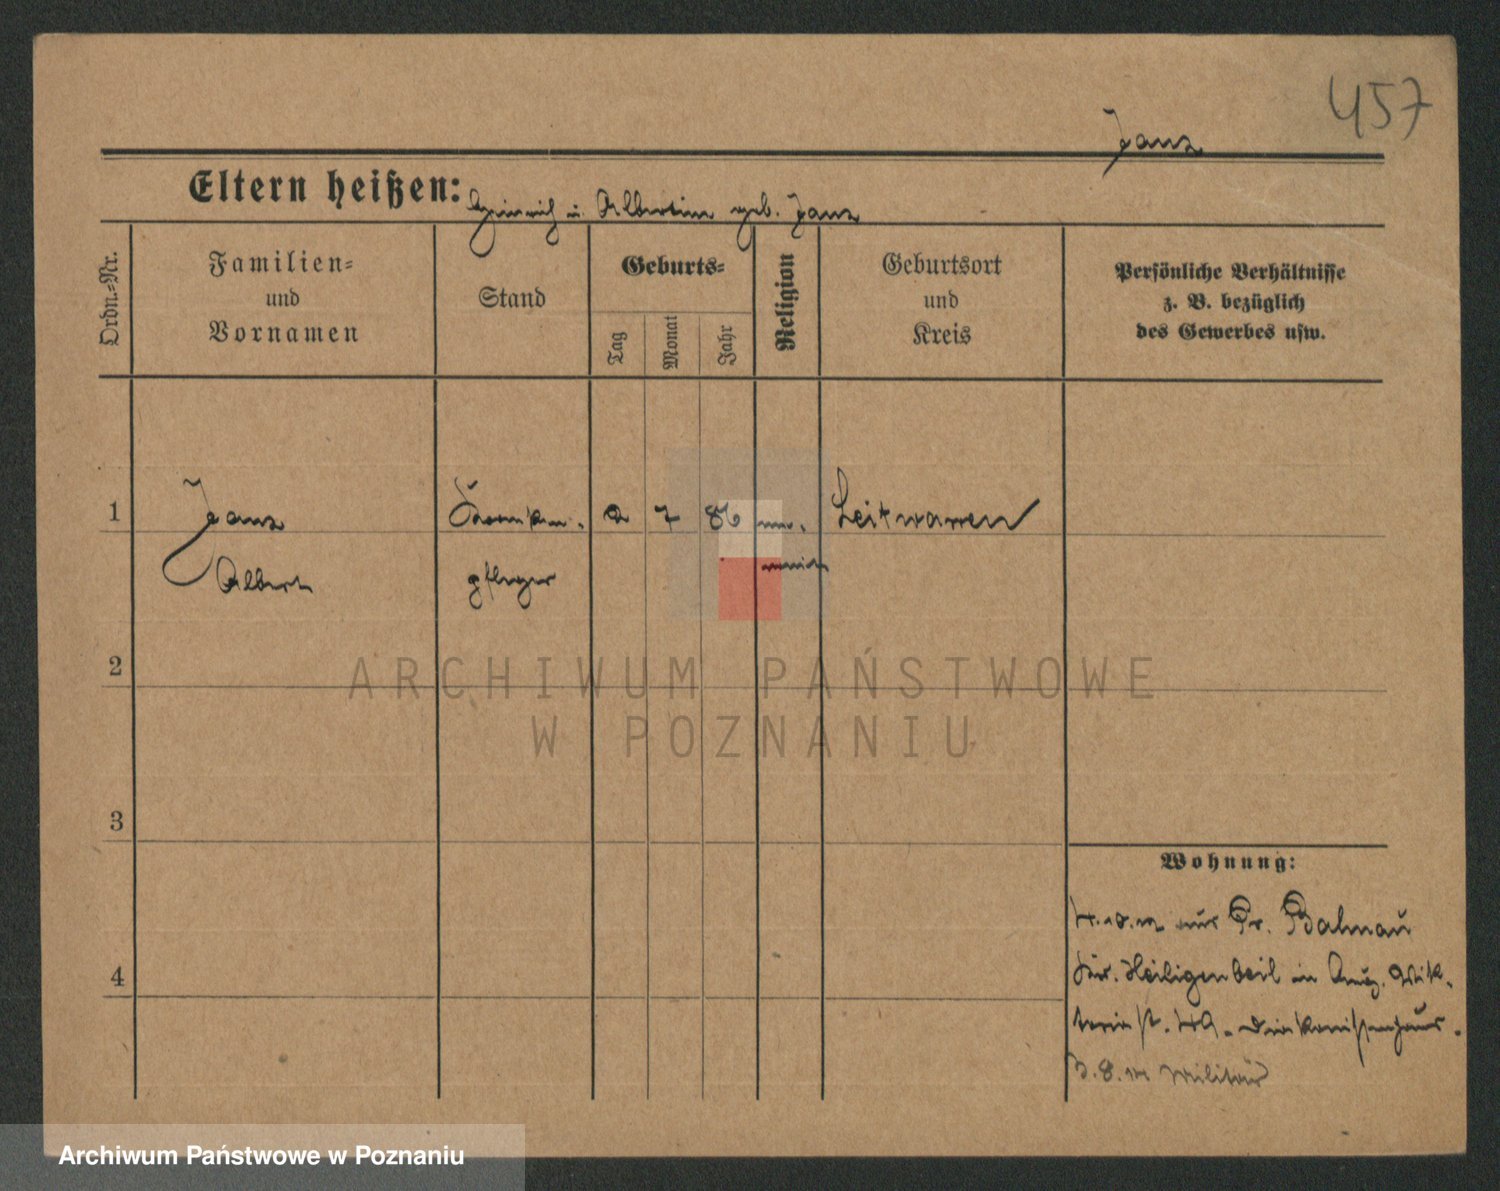 457
Janz
Eltern heißen: Heinrich u. Albertine geb. Janz
Ordn.=Nr.
Familien=
und
Vornamen
Stand
Geburts=
Tag
Monat
Jahr
Religion
Geburtsort
und
Kreis
Persönliche Verhältnisse
z. B. bezüglich
des Gewerbes usw.
1
Janz
Albert
Kranken-
pfleger
2
7
86
Leitwarren
2
3
4
ARCHIWUM PAŃSTWOWE
W POZNANIU
Wohnung:
aus Pr. Bahnau
Kr. Heiligenbeil in
Diakonissenhaus.
Militär
Archiwum Państwowe w Poznaniu